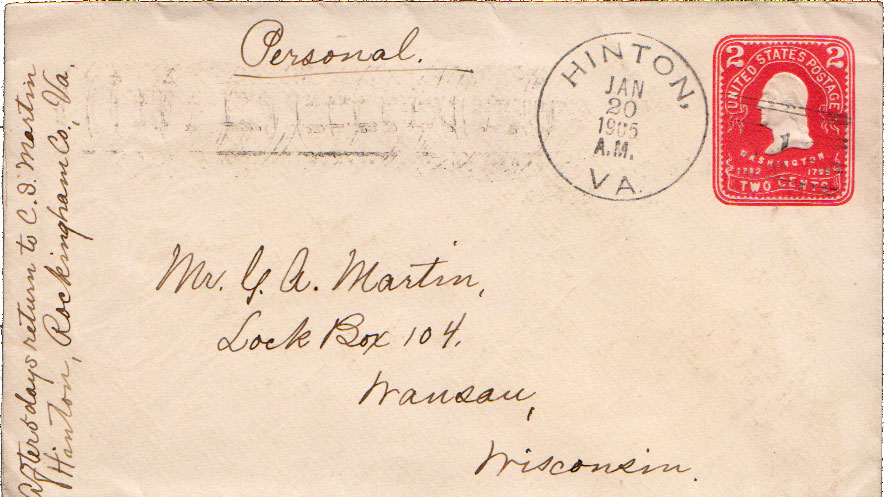 Personal.
HINTON,
JAN
20
1905
A.M.
VA.
2 2
UNITED STATES POSTAGE
WASHINGTON
1732 1799
TWO CENTS
Mr. G. A. Martin,
Lock Box 104.
Wausau,
Wisconsin.
After 5 days return to C. I. Martin
Hinton, Rockingham Co., Va.